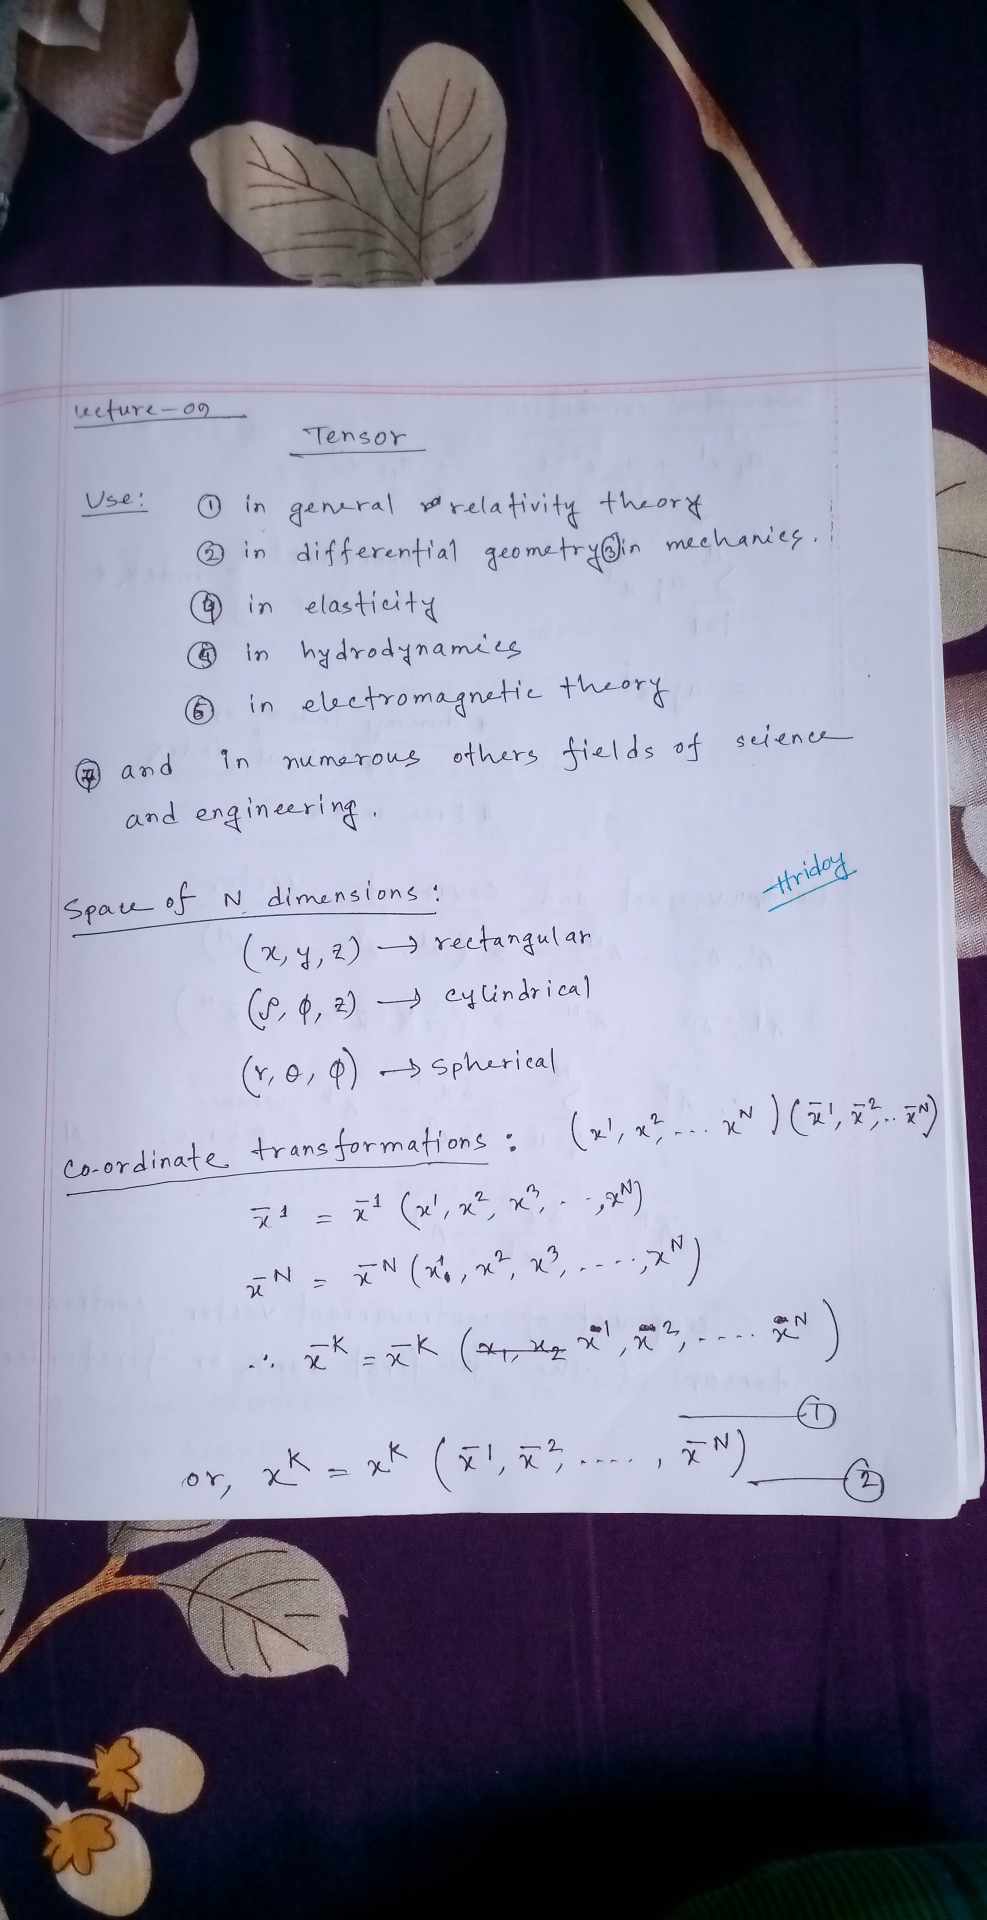 Lecture-09
Tensor
Use: ① in general relativity theory
② in differential geometry ③ in mechanics.
④ in elasticity
⑤ in hydrodynamics
⑥ in electromagnetic theory
⑦ and in numerous others fields of science
and engineering.
Hridoy
Space of N dimensions:
(x, y, z) → rectangular
(ρ, ϕ, z) → cylindrical
(r, θ, ϕ) → spherical
Co-ordinate transformations: (x¹, x², ... xᴺ) (x̄¹, x̄², .. x̄ᴺ)
x̄¹ = x̄¹ (x¹, x², x³, . ., xᴺ)
x̄ᴺ = x̄ᴺ (x¹, x², x³, ....., xᴺ)
∴ x̄ᴷ = x̄ᴷ (x¹, x², .... xᴺ)
①
or, xᴷ = xᴷ (x̄¹, x̄², ...., x̄ᴺ) ②